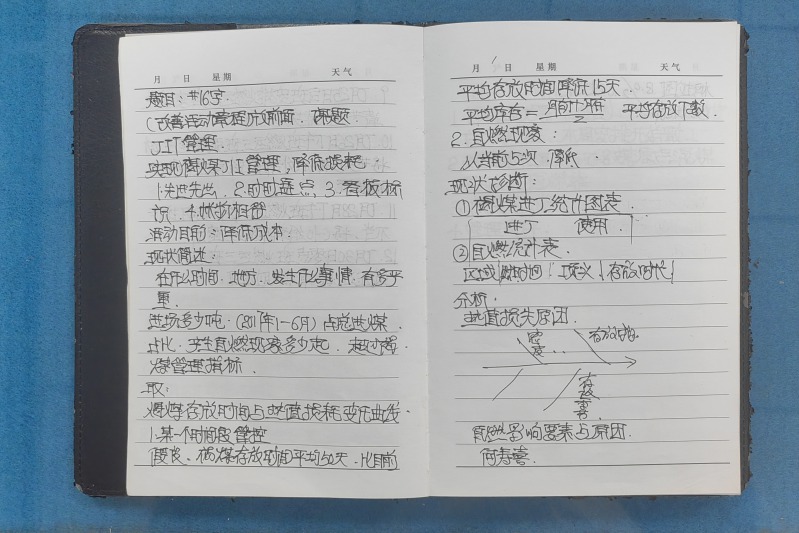 月 日 星期 天气
题目：#16字
(改善活动课程应前面 课题
JIT管理
实现褐煤JIT管理,降低损耗
1.先进先出 2.时时盘点,3.看板标
识 4.帐物相符
活动目的：降低成本.
现状简述：
在什么时间.地方.发生什么事情.有多严
重.
进场多少吨.(2017年1-6月)占总进煤
占比.发生自燃现象多少起.超过褐
煤管理指标.
取：
褐煤存放时间与热值损耗变化曲线.
1.某一个时间段管控
假设、褐煤存放时间平均50天.比目前
月 日 星期 天气
平均存放时间降低15天
平均库存= 2 平均存放下数.
2.自燃现象：
从当前5次 降低
现状诊断：
①褐煤进厂统计图表
进厂 使用
②自燃统计表.
区域 时间 存放时代
分析.
热值损失原因.
密度.. 存放时间
存放
自燃影响要素与原因.